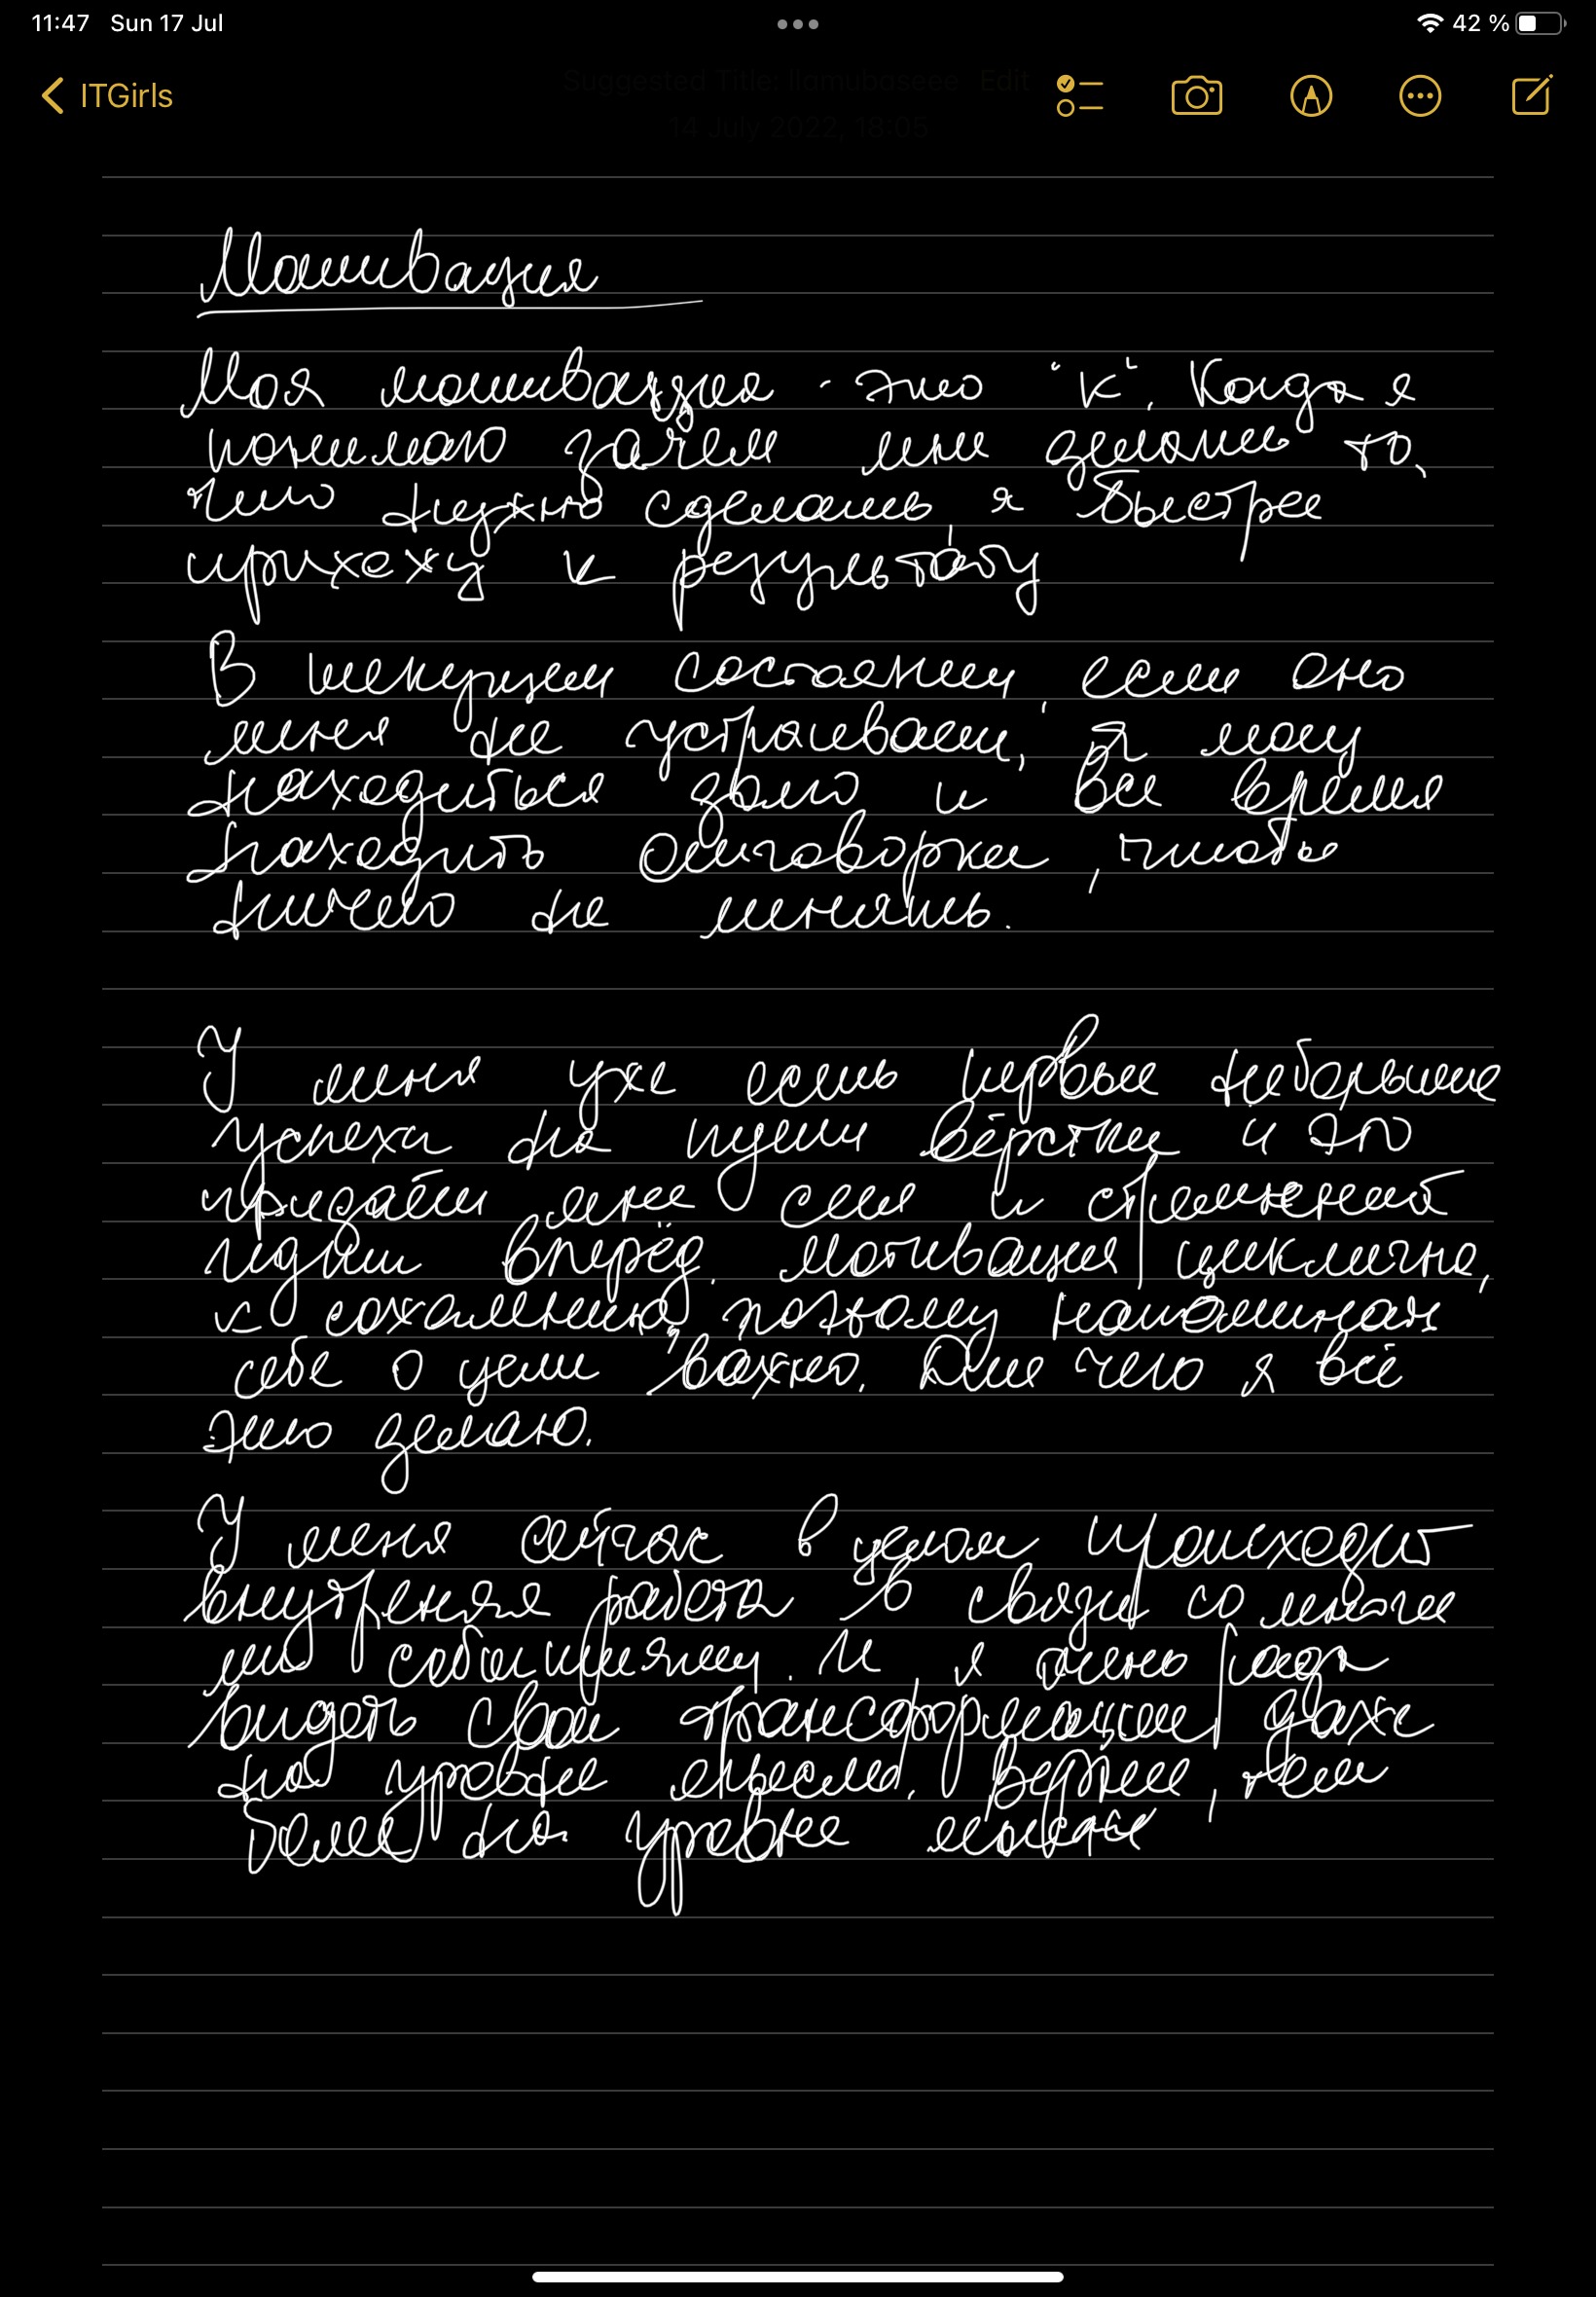 11:47 Sun 17 Jul
42 %
ITGirls
Suggested Title: llamubaseee Edit
14 July 2022, 18:05
Мотивация
Моя мотивация - это "К". Когда я
понимаю зачем мне делать то,
что нужно сделать, я быстрее
прихожу к результату
В текущем состоянии, если оно
меня не устраивает, я могу
находиться долго и все время
находить отговорки, чтобы
ничего не менять.
У меня уже есть первые небольшие
успехи на пути вёрстки и это
придаёт мне сил и стремлений
идти вперёд. Мотивация циклична,
к сожалению, поэтому напоминать
себе о цели важно. Для чего я всё
это делаю.
У меня сейчас в целом происходит
внутреняя работа в связи со многи
ми событиями. И я очень рада
видеть свои трансформации даже
на уровне мысли. Вернее, тем
более на уровне мысли